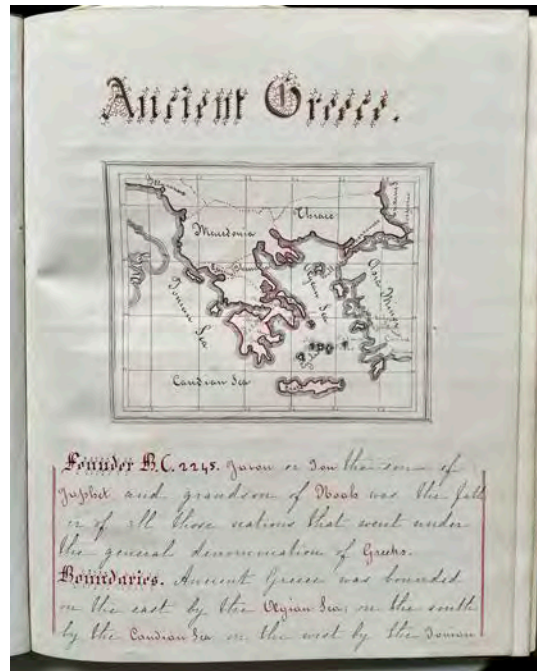 Ancient Greece.
Macedonia
Thrace
Ionian Sea
Asia Minor
Candian Sea
Founder B.C. 2245. Javan or Ion the son of
Japhet and grandson of Noah was the fath
er of all those nations that went under
the general denomination of Greeks.
Boundaries. Ancient Greece was bounded
on the east by the Aegian Sea, on the south
by the Candian Sea on the west by the Ionian